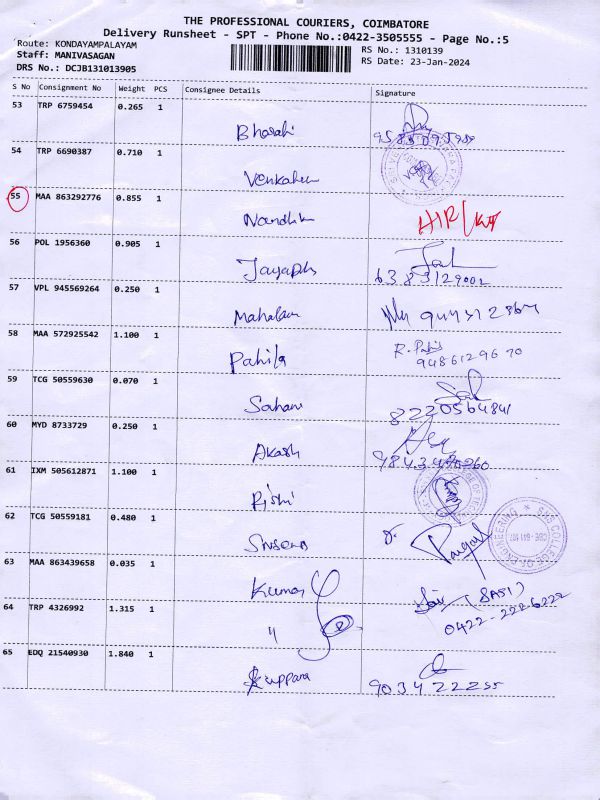 THE PROFESSIONAL COURIERS, COIMBATORE
Delivery Runsheet - SPT - Phone No.:0422-3505555 - Page No.:5
Route: KONDAYAMPALAYAM
Staff: MANIVASAGAN
DRS No.: DCJB131013905
RS No.: 1310139
RS Date: 23-Jan-2024
S No Consignment No Weight PCS Consignee Details Signature
53 TRP 6759454 0.265 1
Bharathi
54 TRP 6690387 0.710 1
55 MAA 863292776 0.855 1
56 POL 1956360 0.905 1
6383129002
57 VPL 945569264 0.250 1
58 MAA 572925542 1.100 1
Pahila
R. Pahil
9486129670
59 TCG 50559630 0.070 1
Sahana
8220564841
60 MYD 8733729 0.250 1
Akash
61 IXM 505612871 1.100 1
Rishi
62 TCG 50559181 0.480 1
SNS COLLEGE OF ENGINEERING
CBE - 641 107
63 MAA 863439658 0.035 1
Kumar
(SASI)
0422-2226222
64 TRP 4326992 1.315 1
"
65 EDQ 21540930 1.840 1
Kuppara
9034222255